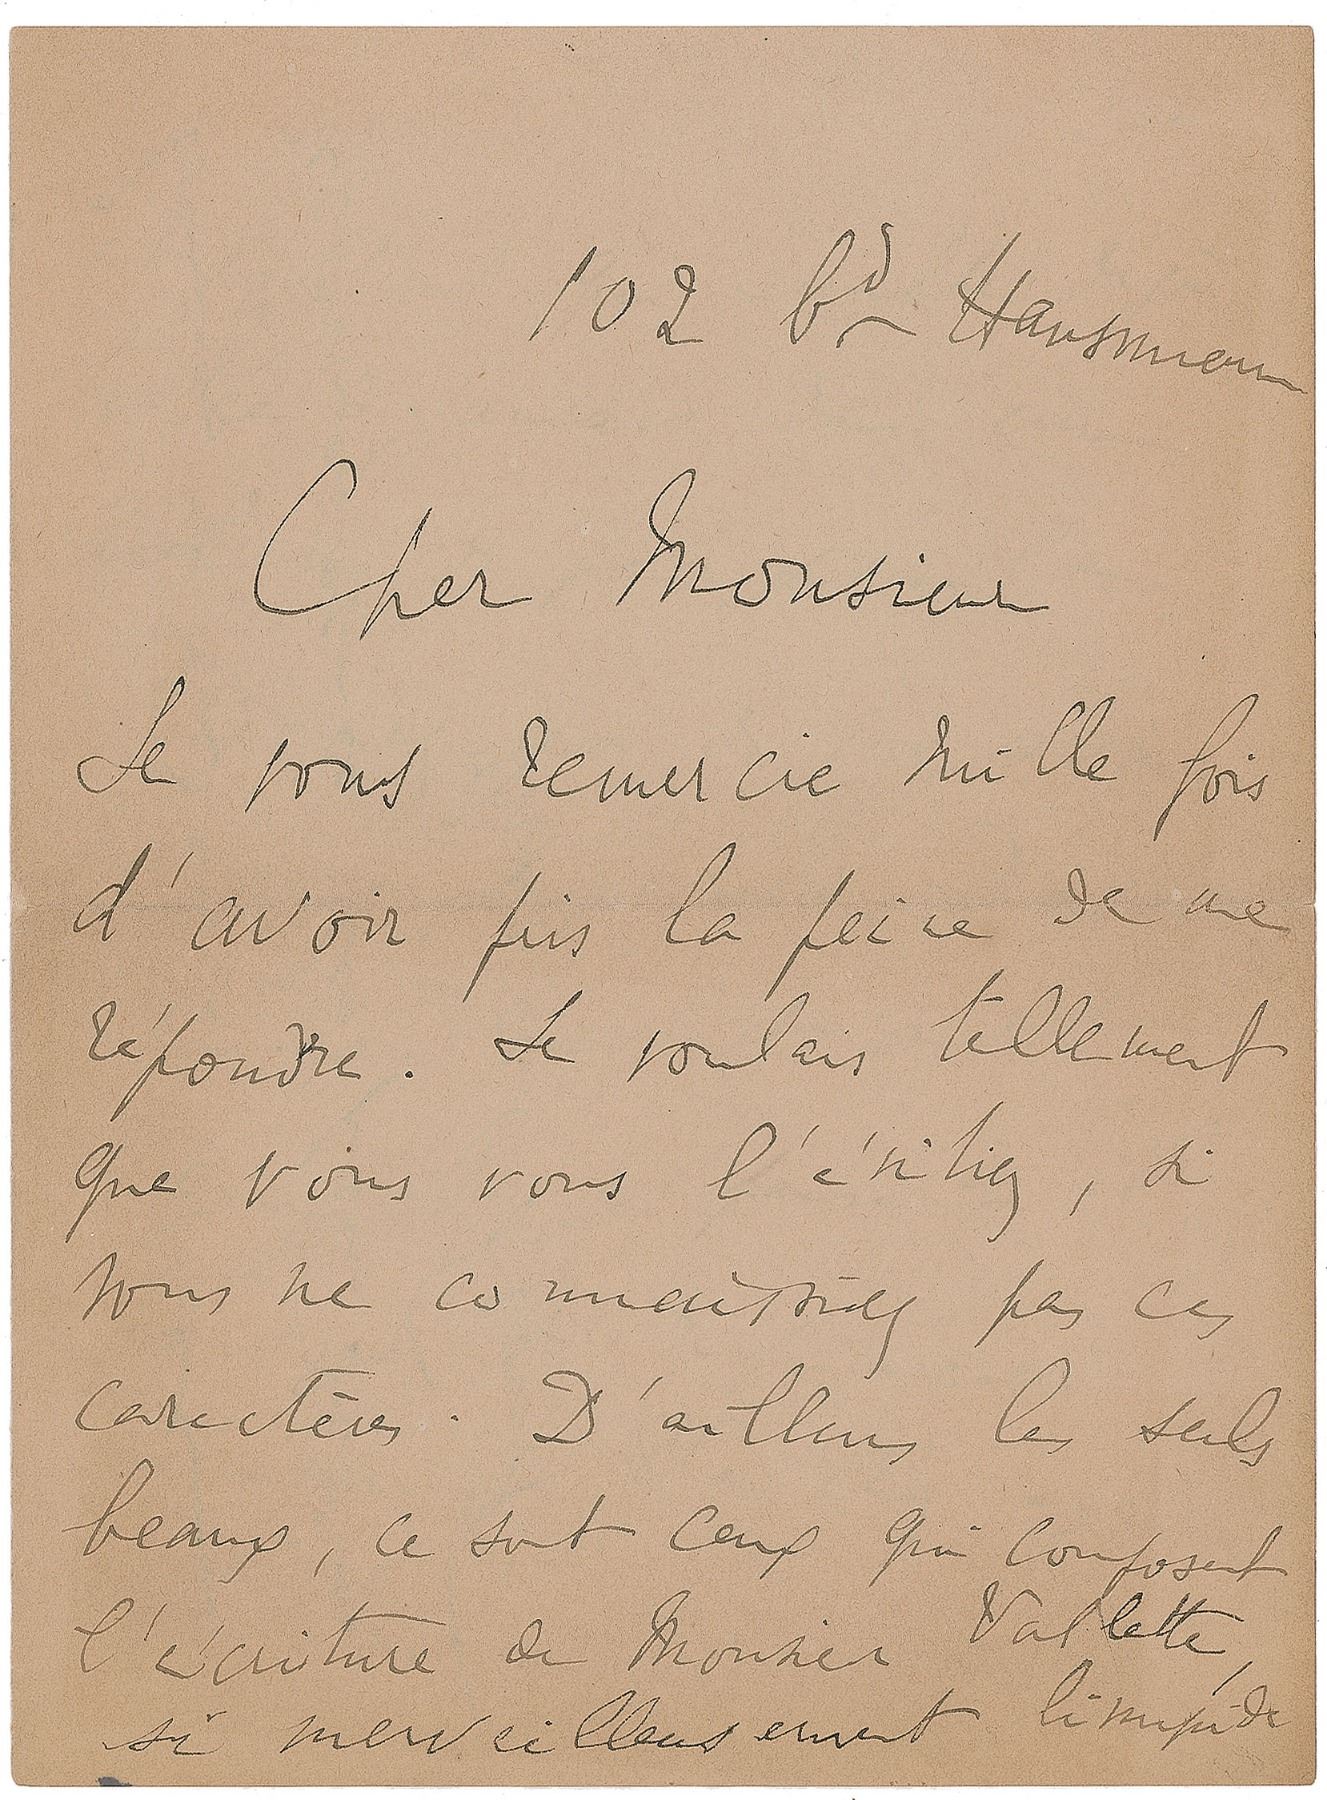 102 bd Hausmann
Cher Monsieur
Je vous remercie mille fois
d'avoir pris la peine de me
répondre. Je voulais tellement
que vous vous l'évitiez, si
vous ne connaissiez pas ces
caractères. D'ailleurs les seuls
beaux, ce sont ceux qui composent
l'écriture de Monsieur Vallette,
si merveilleusement limpide